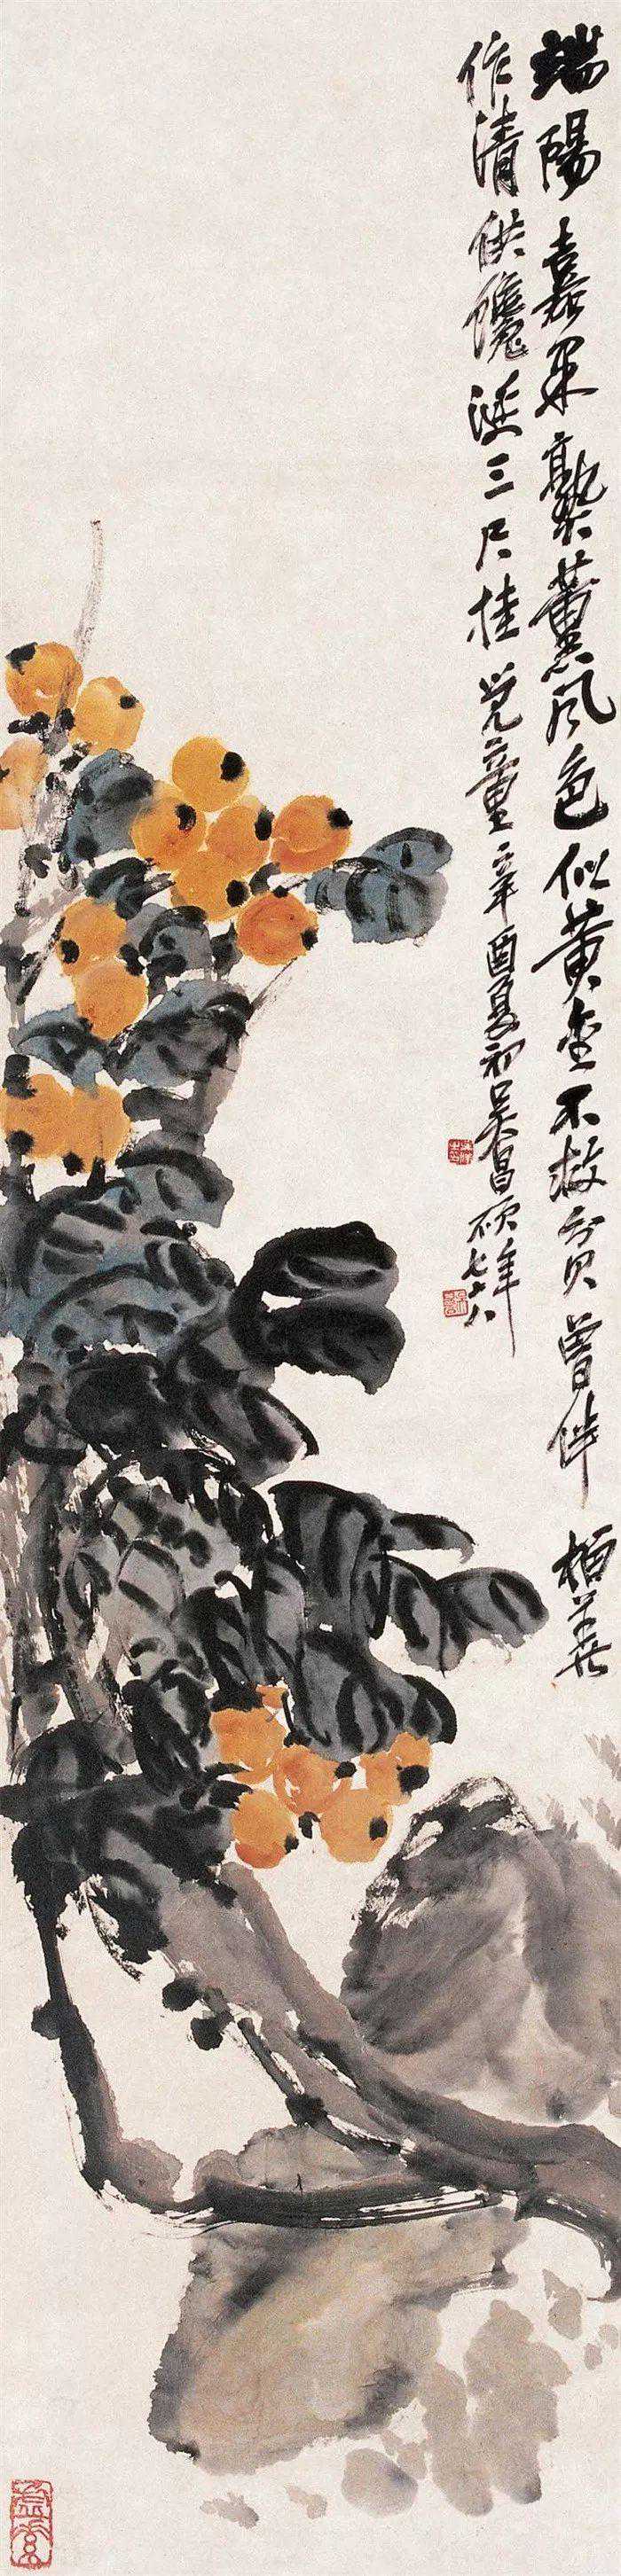 端陽嘉果熟薰風色似黃金不救貧曾伴柏葉
作清供饞涎三尺挂兒童辛酉夏初吳昌碩年七十八